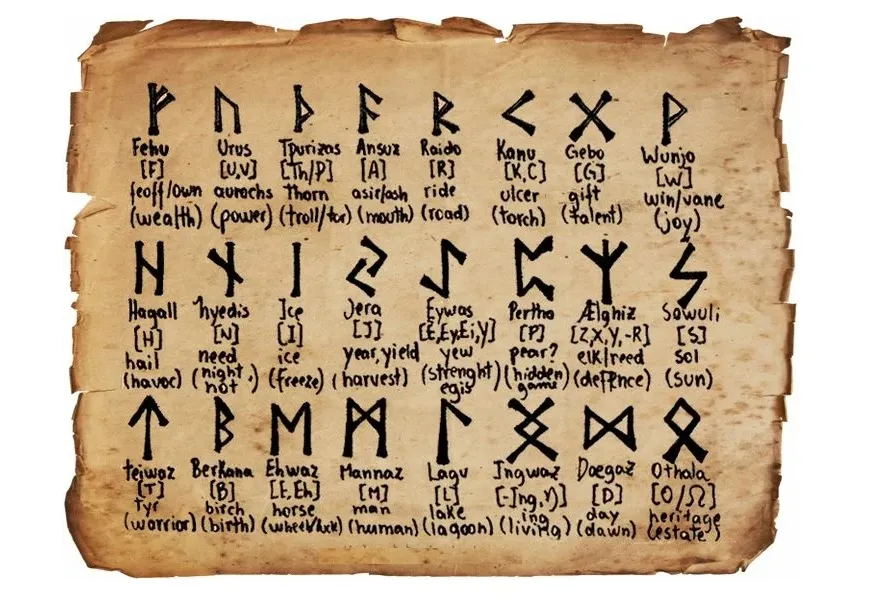 ᚠ ᚢ ᚦ ᚨ ᚱ ᚲ ᚷ ᚹ
Fehu Urus Tpurizas Ansuz Raido Kanu Gebo Wunjo
[F] [U,V] [Th/P] [A] [R] [K,C] [G] [W]
feoff/own aurochs Thorn asir/ash ride ulcer gift win/vane
(wealth) (power) (troll/tor) (mouth) (road) (torch) (talent) (joy)
ᚺ ᚾ ᛁ ᛃ ᛇ ᛈ ᛉ ᛋ
Hagall Nyedis Ice Jera Eywas Pertho Ælghiz Sowuli
[H] [N] [I] [J] [E,Ey,Ei,Y] [P] [Z,X,Y,-R] [S]
hail need ice year,yield yew pear? elk/reed sol
(havoc) (night, (freeze) (harvest) (strenght (hidden (deffence) (sun)
not) egis) game)
ᛏ ᛒ ᛖ ᛗ ᛚ ᛝ ᛞ ᛟ
teiwaz Berkana Ehwaz Mannaz Lagu Ingwaz Daegaz Othala
[T] [B] [E,Eh] [M] [L] [-Ing,Y)] [D] [O/Ω]
tyr birch horse man lake ing day heritage
(warrior) (birth) (human) (lagoon) (living) (dawn) (estate)